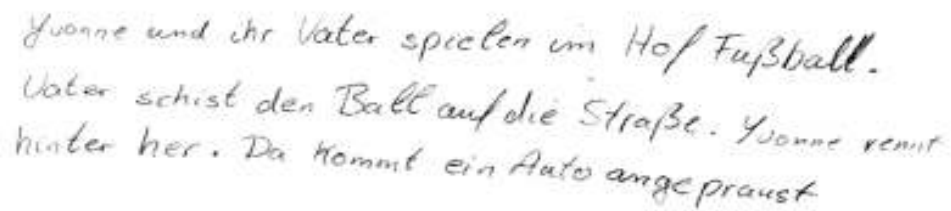 Yvonne und ihr Vater spielen im Hof Fußball.
Vater schist den Ball auf die Straße. Yvonne rennt
hinter her. Da kommt ein Auto angepraust